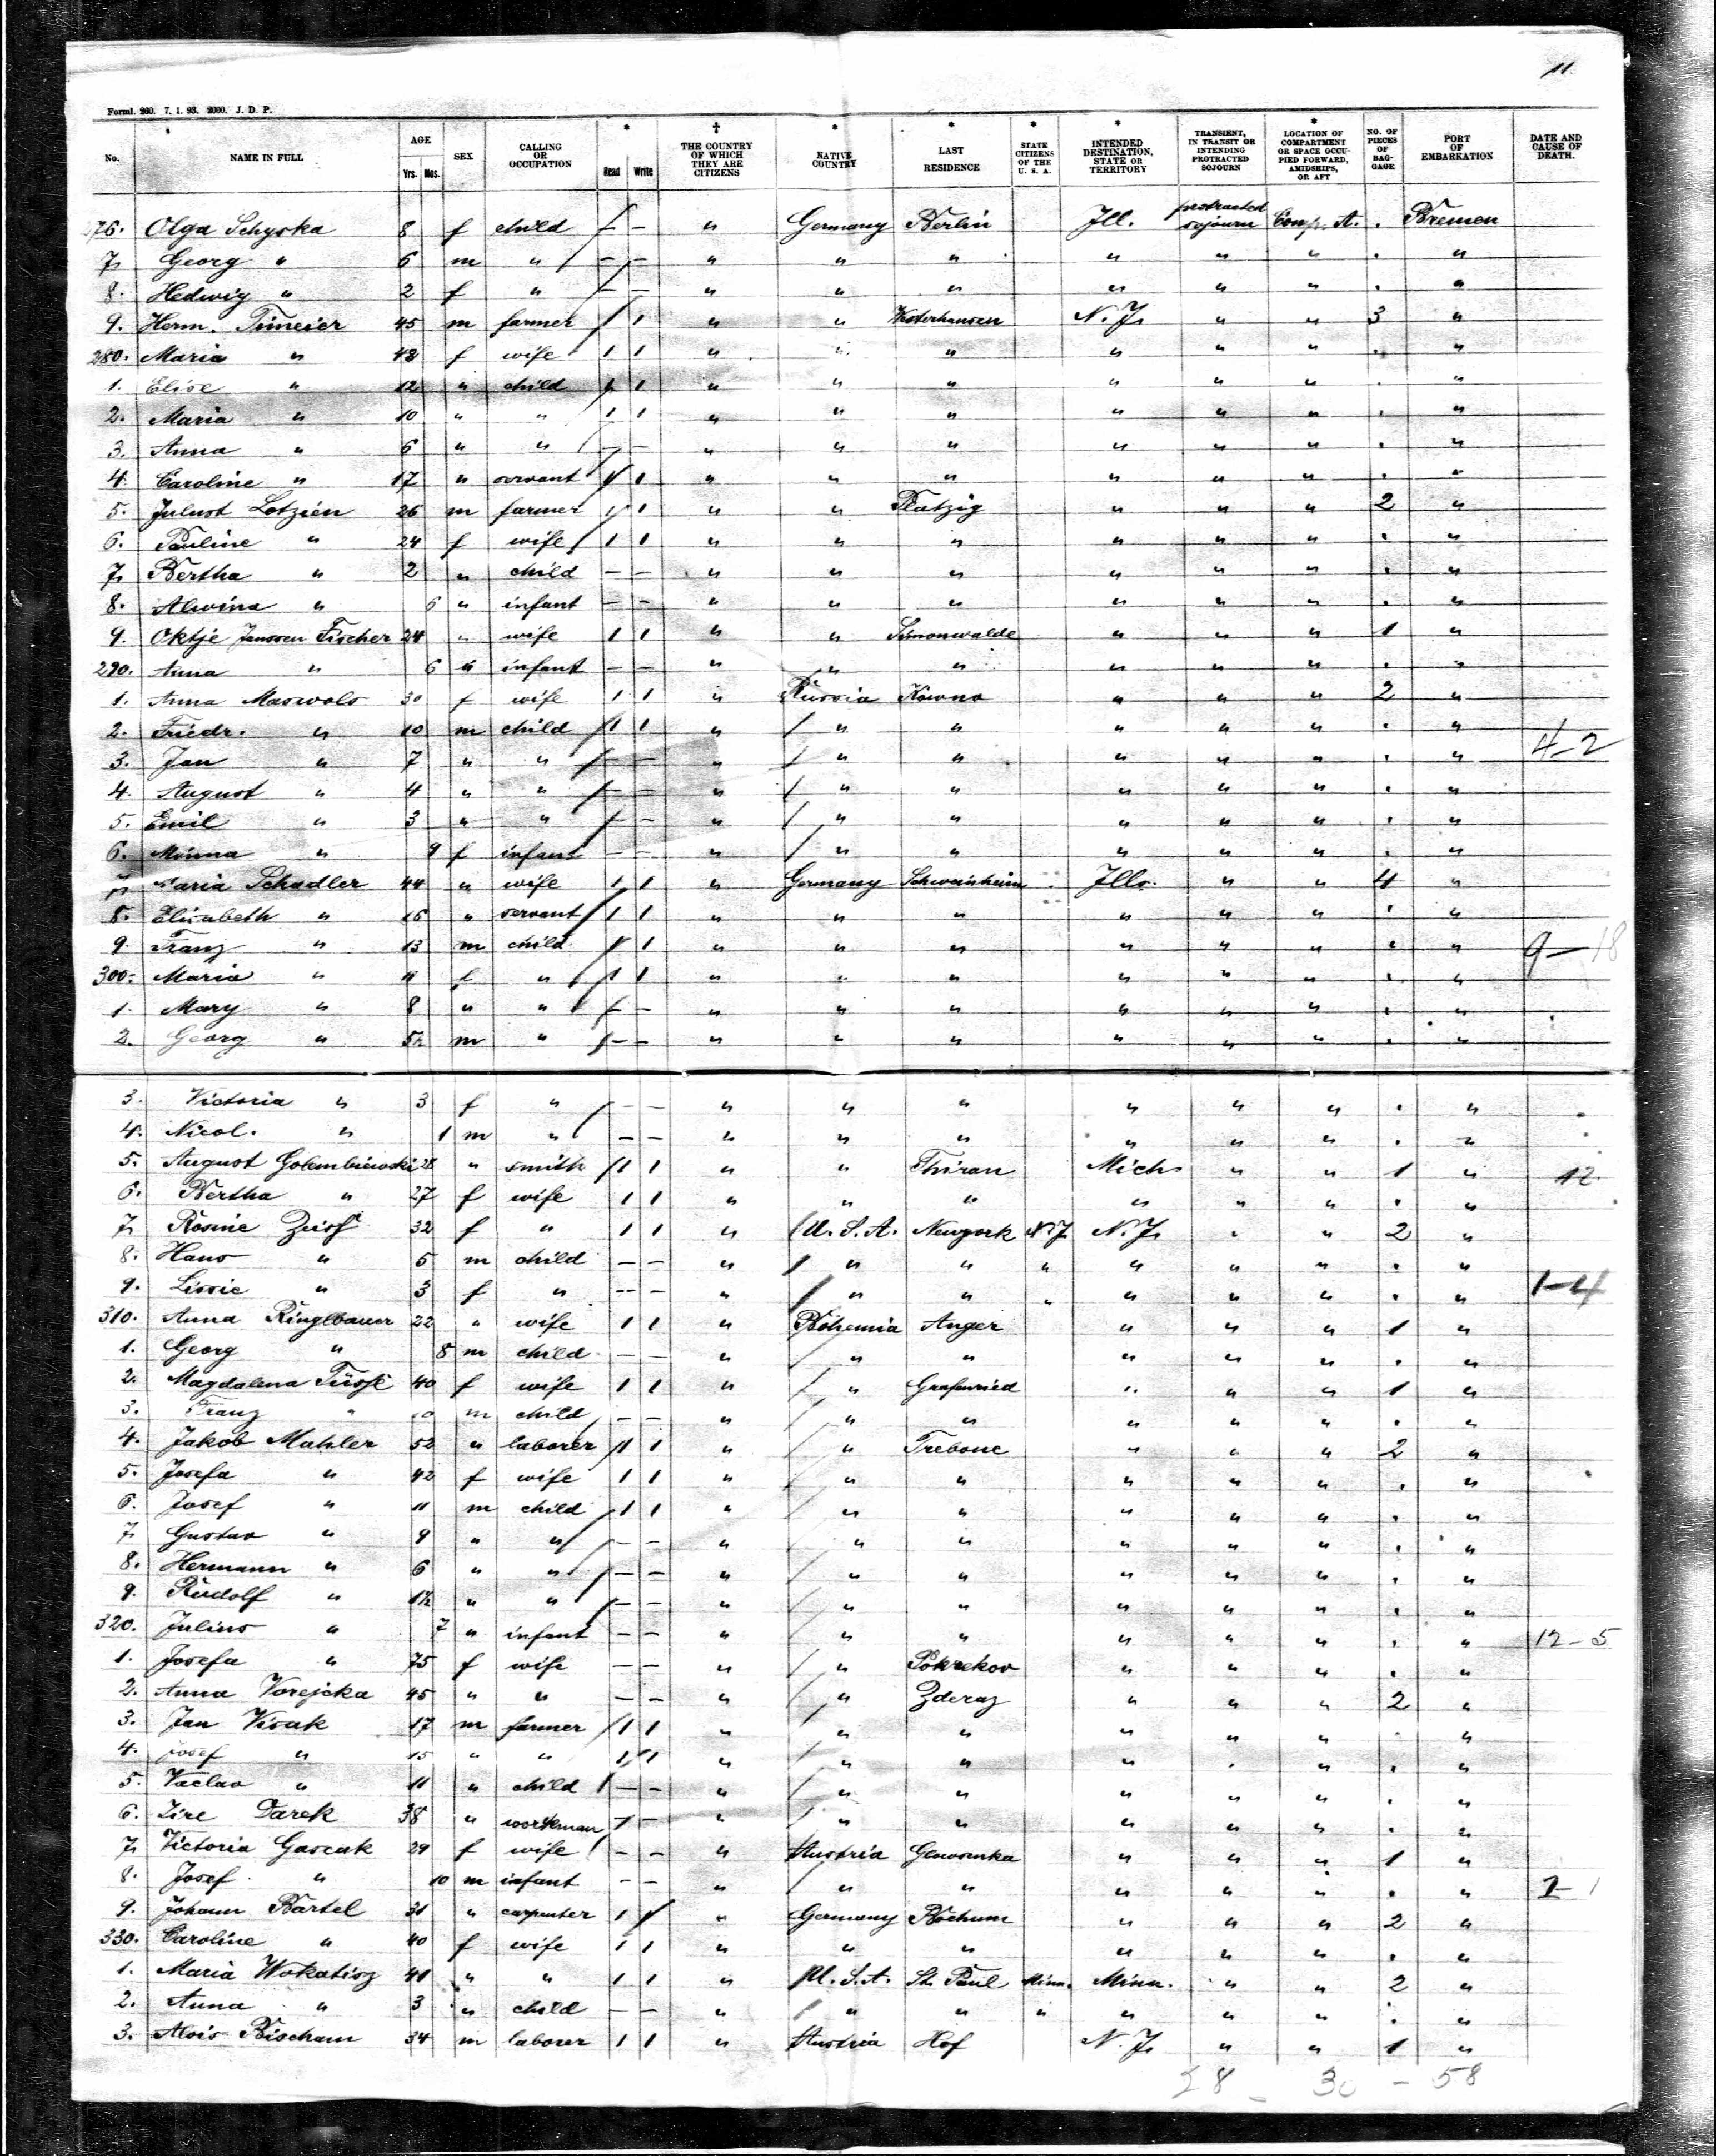 11.
Forml. 260. 7. 1. 93. 2000. J. D. P.
No. NAME IN FULL AGE Yrs. Mos. SEX CALLING OR OCCUPATION * Read Write † THE COUNTRY OF WHICH THEY ARE CITIZENS * NATIVE COUNTRY * LAST RESIDENCE * STATE CITIZENS OF THE U. S. A. * INTENDED DESTINATION, STATE OR TERRITORY TRANSIENT, IN TRANSIT OR INTENDING PROTRACTED SOJOURN * LOCATION OF COMPARTMENT OR SPACE OCCUPIED FORWARD, AMIDSHIPS, OR AFT NO. OF PIECES OF BAGGAGE PORT OF EMBARKATION DATE AND CAUSE OF DEATH.
276. Olga Schyska 8 f child — — " Germany Berlin Ill. protracted sojourn Comp. A. . Bremen
7. Georg " 6 m " — — " " " " " " . "
8. Hedwig " 2 f " — — " " " " " " . "
9. Herm. Timeier 45 m farmer 1 1 " " Westerhausen N. J. " " 3 "
280. Maria " 48 f wife 1 1 " " " " " " . "
1. Elise " 12 " child 1 1 " " " " " " . "
2. Maria " 10 " " 1 1 " " " " " " . "
3. Anna " 6 " " — — " " " " " " . "
4. Caroline " 17 " servant 1 1 " " " " " " . "
5. Julust Lotzien 26 m farmer 1 1 " " Flatzig " " " 2 "
6. Pauline " 24 f wife 1 1 " " " " " " . "
7. Bertha " 2 " child — — " " " " " " . "
8. Alwina " 6 " infant — — " " " " " " . "
9. Oktje Janssen Fischer 24 " wife 1 1 " " Simonwalde " " " 1 "
290. Anna " 6 " infant — — " " " " " " . "
1. Anna Maswols 30 f wife 1 1 " Russia Kowno " " " 2 "
2. Friedr. " 10 m child 1 1 " " " " " " . "
3. Jan " 7 " " — — " " " " " " . " 4-2
4. August " 4 " " — — " " " " " " . "
5. Emil " 3 " " — — " " " " " " . "
6. Minna " 9 f infant — — " " " " " " . "
7. Maria Schadler 44 " wife 1 1 " Germany Schweinheim Ills. " " 4 "
8. Elisabeth " 16 " servant 1 1 " " " " " " . "
9. Franz " 13 m child 1 1 " " " " " " . " 9-18
300. Maria " 11 f " 1 1 " " " " " " . "
1. Mary " 8 " " — — " " " " " " . "
2. Georg " 5½ m " — — " " " " " " . "
3. Victoria " 3 f " — — " " " " " " . "
4. Nicol. " 1 m " — — " " " " " " . "
5. August Golembiewski 28 " smith 1 1 " " Thiran Mich " " 1 " 12
6. Bertha " 27 f wife 1 1 " " " " " " . "
7. Rosine Zeiss 32 f " 1 1 " U. S. A. Newyork N. J. N. J. " " 2 "
8. Hans " 5 m child — — " " " " " " " . "
9. Lissie " 3 f " — — " " " " " " " . " 1-4
310. Anna Ringlbauer 22 " wife 1 1 " Bohemia Anger " " " 1 "
1. Georg " 8 m child — — " " " " " " . "
2. Magdalena Füssl 40 f wife 1 1 " " Grafenried " " " 1 "
3. Franz " 10 m child — — " " " " " " . "
4. Jakob Mahler 52 " laborer 1 1 " " Trebone " " " 2 "
5. Josefa " 42 f wife 1 1 " " " " " " . "
6. Josef " 11 m child 1 1 " " " " " " . "
7. Gustav " 9 " " — — " " " " " " . "
8. Hermann " 6 " " — — " " " " " " . "
9. Rudolf " 1½ " " — — " " " " " " . "
320. Julius " 7 " infant — — " " " " " " . " 12-5
1. Josefa " 75 f wife — — " " Pokrekov " " " . "
2. Anna Vorejcka 45 " " — — " " Zderaz " " " 2 "
3. Jan Visak 17 m farmer 1 1 " " " " " " . "
4. Josef " 15 " " 1 1 " " " " " " . "
5. Vaclav " 11 " child — — " " " " " " . "
6. Jire Darek 38 " workman — — " " " " " " . "
7. Victoria Gascak 29 f wife — — " Austria Glowsenka " " " 1 "
8. Josef " 10 m infant — — " " " " " " . " 1-1
9. Johann Bartel 31 " carpenter 1 1 " Germany Bochum " " " 2 "
330. Caroline " 40 f wife 1 1 " " " " " " . "
1. Maria Wokatisz 41 " " 1 1 " U. S. A. St. Paul Minn. Minn. " " 2 "
2. Anna " 3 " child — — " " " " " " " . "
3. Alois Bischam 34 m laborer 1 1 " Austria Hof N. J. " " 1 "
28 - 30 - 58